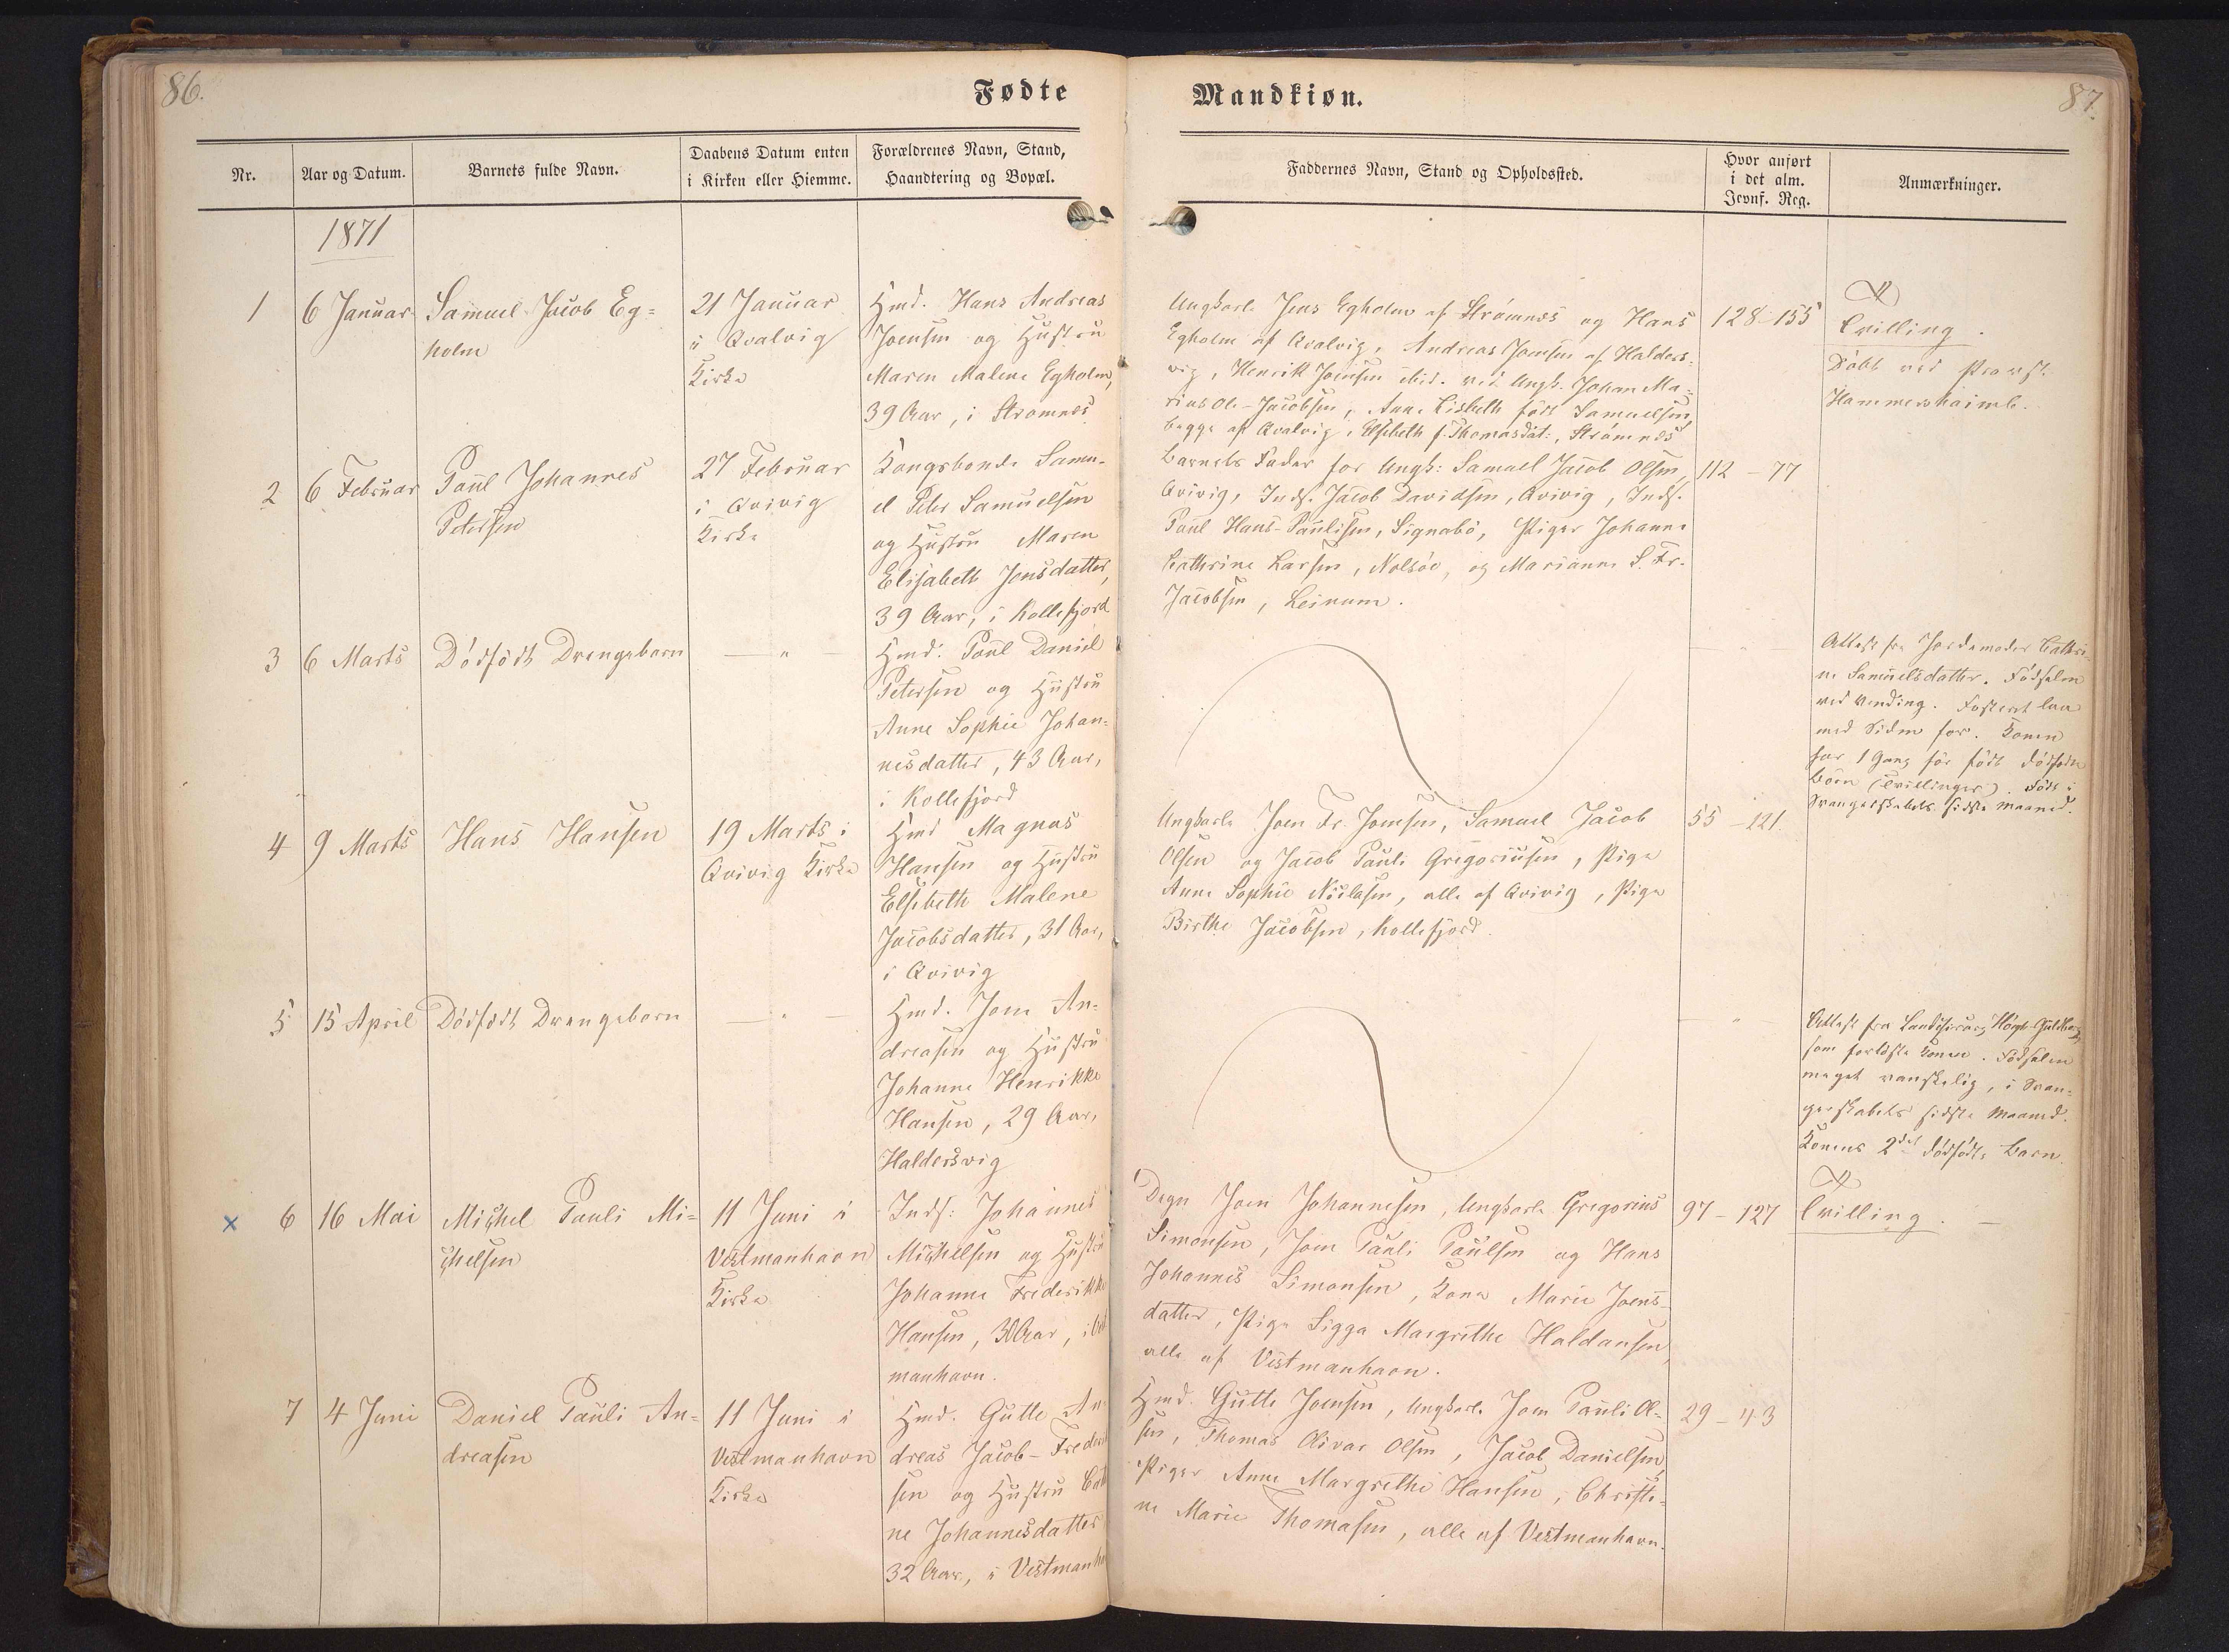 86.
Fødte
Nr.
Aar og Datum.
Barnets fulde Navn.
Daabens Datum enten
i Kirken eller Hiemme.
Forældrenes Navn, Stand,
Haandtering og Bopæl.
1871
1
6 Januar
Samuel Jacob Eg=
holm
21 Januar
i Qvalvig
Kirke
Hmd. Hans Andreas
Joensen og Hustru
Maren Malene Egholm,
39 Aar, i Strømnes
2
6 Februar
Poul Johannes
Petersen
27 Februar
i Qvivig
Kirke
Kongsbonde Samu-
el Peter Samuelsen
og Hustru Maren
Elisabeth Jensdatter,
39 Aar, i Kollefjord
3
6 Marts
Dødfødt Drengebarn
— " —
Hmd. Poul Daniel
Petersen og Hustru
Anne Sophie Johan=
nesdatter, 43 Aar,
i Kollefjord
4
9 Marts
Hans Hansen
19 Marts i
Qvivig Kirke
Hmd Magnus
Hansen og Hustru
Elsebeth Malene
Jacobsdatter, 31 Aar,
i Qvivig
5
15 April
Dødfødt Drengebarn
— " —
Hmd. Joen An=
dreasen og Hustru
Johanne Henrikke
Hansen, 29 Aar,
Haldersvig
x 6
16 Mai
Michel Pauli Mi=
chelsen
11 Juni i
Vestmanhavn
Kirke
Inds: Johannes
Michelsen og Hustru
Johanne Frederikke
Hansen, 30 Aar, i
manhavn.
7
4 Juni
Daniel Pauli An=
dreasen
11 Juni i
Vestmanhavn
Kirke
Hmd. Gutte An
dreas Jacob-Freder
sen og Hustru
ne Johannesdatter
32 Aar, i Vestmanha
Mandkiøn.
87.
Faddernes Navn, Stand og Opholdssted.
Hvor anført
i det alm.
Jevnf. Reg.
Anmærkninger.
Ungkarle Jens Egholm af Strømnes og Hans
Egholm af Qvalvig, Andreas Joensen af Halders-
vig, Henrik Joensen ibid. Ungk. Johan Ma=
rius Ole-Jacobsen, Anne Lisbeth født Samuelsen,
begge af Qvalvig, Elsebeth f. Thomasdat:, Strømnes
128-155
Tvilling.
Døbt ved Provst
Hammershaimb.
Barnets Fader for Ungk: Samuel Jacob Olsen,
Qvivig, Inds. Jacob Davidsen, Qvivig, Inds.
Poul Hans-Paulisen, Signabø, Piger Johanne
Cathrine Larsen, Nolsøe, og Marianne S. Fr.
Jacobsen, Leinum.
112 - 77
— " —
Attest fra Jordemoder Cathri-
ne Samuelsdatter. Fødselen
ved Vending. Fosteret laa
med Siden for. Konen
har 1 Gang før født dødfødte
Børn (Tvillinger). Født i
Svangerskabets sidste Maaned.
Ungkarle Joen Fr. Joensen, Samuel Jacob
Olsen og Jacob Pauli Gregoriusen, Pige
Anne Sophie Niclasen, alle af Qvivig, Pige
Birthe Jacobsen, Kollefjord.
55 - 121.
— " —
Attest fra Landchirurg Høgh-Guldberg,
som forløste Konen. Fødselen
meget vanskelig, i Svan-
gerskabets sidste Maaned.
Konens 2det dødfødte Barn.
Degn Joen Johannesen, Ungkarle Gregorius
Simonsen, Joen Pauli Poulsen og Hans
Johannes Simonsen, Kone Marie Joens-
datter, Pige Sigga Margrethe Haldansen,
alle af Vestmanhavn.
97 - 127
Tvilling. —
Hmd. Gutte Joensen, Ungkarle Joen Pauli Ol=
sen, Thomas Olivar Olsen, Jacob Danielsen,
Piger Anne Margrethe Hansen, Christi=
ne Marie Thomasen, alle af Vestmanhavn.
29 - 43